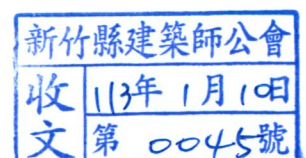 新竹縣建築師公會
收文
113年1月10日
第0045號